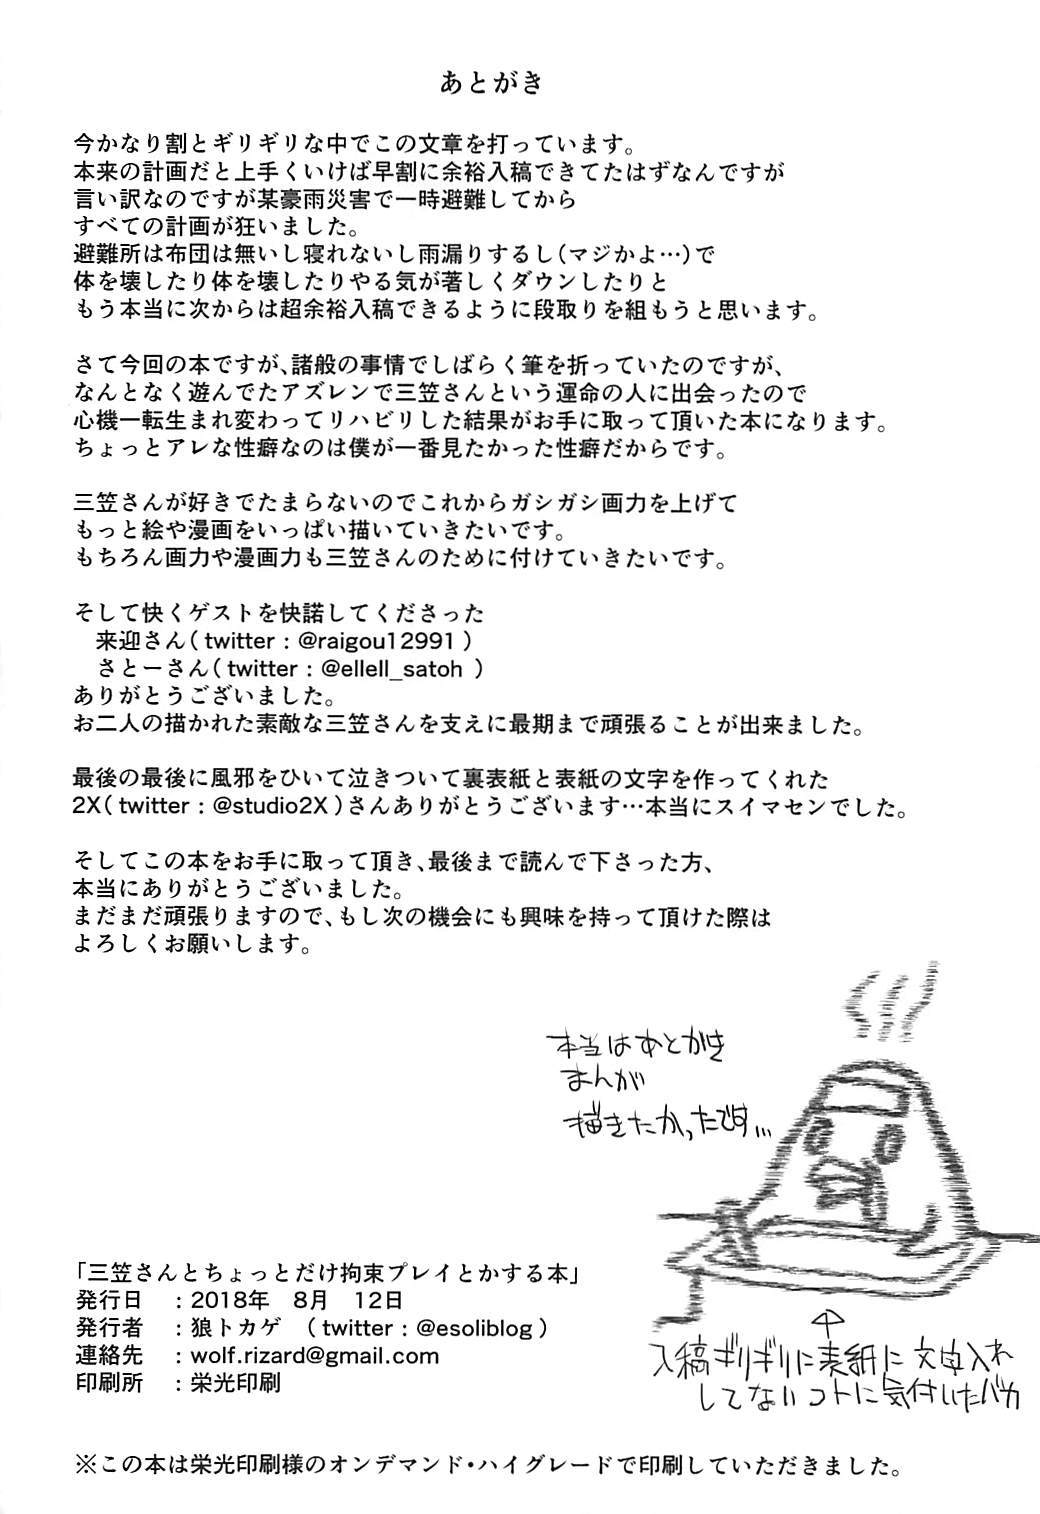 あとがき
今かなり割とギリギリな中でこの文章を打っています。
本来の計画だと上手くいけば早割に余裕入稿できてたはずなんですが
言い訳なのですが某豪雨災害で一時避難してから
すべての計画が狂いました。
避難所は布団は無いし寝れないし雨漏りするし(マジかよ…)で
体を壊したり体を壊したりやる気が著しくダウンしたりと
もう本当に次からは超余裕入稿できるように段取りを組もうと思います。
さて今回の本ですが、諸般の事情でしばらく筆を折っていたのですが、
なんとなく遊んでたアズレンで三笠さんという運命の人に出会ったので
心機一転生まれ変わってリハビリした結果がお手に取って頂いた本になります。
ちょっとアレな性癖なのは僕が一番見たかった性癖だからです。
三笠さんが好きでたまらないのでこれからガシガシ画力を上げて
もっと絵や漫画をいっぱい描いていきたいです。
もちろん画力や漫画力も三笠さんのために付けていきたいです。
そして快くゲストを快諾してくださった
来迎さん( twitter : @raigou12991 )
さとーさん( twitter : @ellell_satoh )
ありがとうございました。
お二人の描かれた素敵な三笠さんを支えに最期まで頑張ることが出来ました。
最後の最後に風邪をひいて泣きついて裏表紙と表紙の文字を作ってくれた
2X( twitter : @studio2X )さんありがとうございます…本当にスイマセンでした。
そしてこの本をお手に取って頂き、最後まで読んで下さった方、
本当にありがとうございました。
まだまだ頑張りますので、もし次の機会にも興味を持って頂けた際は
よろしくお願いします。
本当はあとがき
まんが
描きたかったです...
入稿ギリギリに表紙に文字入れ
してないコトに気付いたバカ
「三笠さんとちょっとだけ拘束プレイとかする本」
発行日 : 2018年 8月 12日
発行者 : 狼トカゲ ( twitter : @esoliblog )
連絡先 : wolf.rizard@gmail.com
印刷所 : 栄光印刷
※この本は栄光印刷様のオンデマンド・ハイグレードで印刷していただきました。